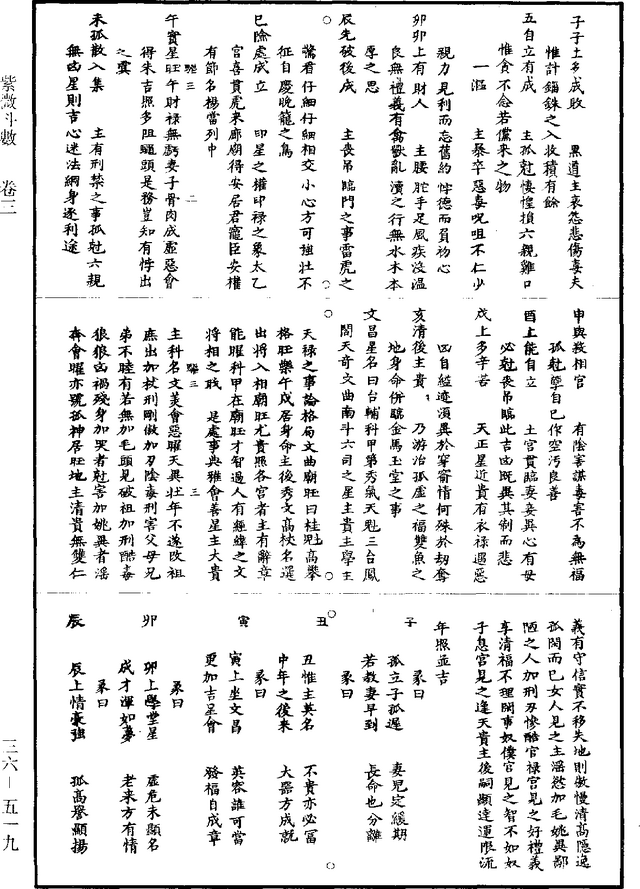 子子土多成敗 黑道主哀怨悲傷妻夫
惟計錙銖之入收積有餘
五自立有成 主孤尅悽惶損六親難口
惟貪不念若儻來之物
一漚 主暴卒惡毒呪咀不仁少
親力見利而忘舊約悖德而負初心
卯卯上有財人 主腰肚手足風疾沒溫
良無禮義有禽獸亂瀆之行無水木本
原之思
辰先破後成 主喪吊臨門之事雷虎之
驚看仔細仔細相交小心方可強壯不
征自慶晚籠之鳥
巳險處成立 印星之權印祿之象太乙
宮喜貫虎來廊廟得安居君寵臣安權
有節名楊當列中
午實星旺午財祿無虧妻子骨肉成虛惡會
得朱吉照多阻蠅頭是務豈知有悖出
之異
未孤散入集 主有刑禁之事孤尅六親
無凶星則吉心迷法網身逐利途
申與救相官 有陰害謀毒害不為無福
孤尅孽自巳作空污良善
酉土能自立 土宮貫臨妻妾異心有母
必尅喪吊臨此吉凶既異其制而悲
戌上多辛苦 天正星近貴有衣祿遇惡
凶自縊違須異於穿窬情何殊於劫奪
亥清後主貴 乃游治孤虛之福雙魚之
地身命併臨金馬玉堂之事
文昌星名曰台輔科甲第秀氣天魁三台鳳
閣天奇文曲南斗六司之星主貴主學主
天祿之事論格局文曲廟旺曰桂魁高攀
格旺樂午成居身命主後秀文高秧名選
出將入相廟旺尤貴照各宮者主有辭章
能曜科甲在廟旺才智過人有經緯之文
將相之職 是處事典雅會善星主大貴
主科名文美會惡曜天異壮年不遂敗祖
庶出加杖刑剛傲加刃陰毒刑害父母兄
弟不睦有若無加毛頭見破祖加刑酷毒
狼狼凶禍殘身加哭者尅害加姚異者淫
奔會曜亦號孤神居旺地主清貴無雙仁
義有守信實不移失地則傲慢清高隱逸
孤閑而巳女人見之主淫慾加毛姚異鄙
陋之人加刑刃慘酷官祿宮見之好禮義
享清福不理閑事奴僕官見之智不如奴
子息宮見之逢天貴主後嗣顯達運限流
年照並吉
子 彖曰
孤立子孤遲 妻兒定緩期
若教妻早到 長命也分離
丑 彖曰
丑惟主英名 不貴亦必富
中年之後來 大器方成就
寅 彖曰
寅上坐文昌 英容誰可當
更加吉星會 發福自成章
卯 彖曰
卯上學堂星 虛危未顯名
成才渾如夢 老來方有情
辰 彖曰
辰上情豪強 孤高譽顯揚
紫微斗數 卷三
三六—五一九